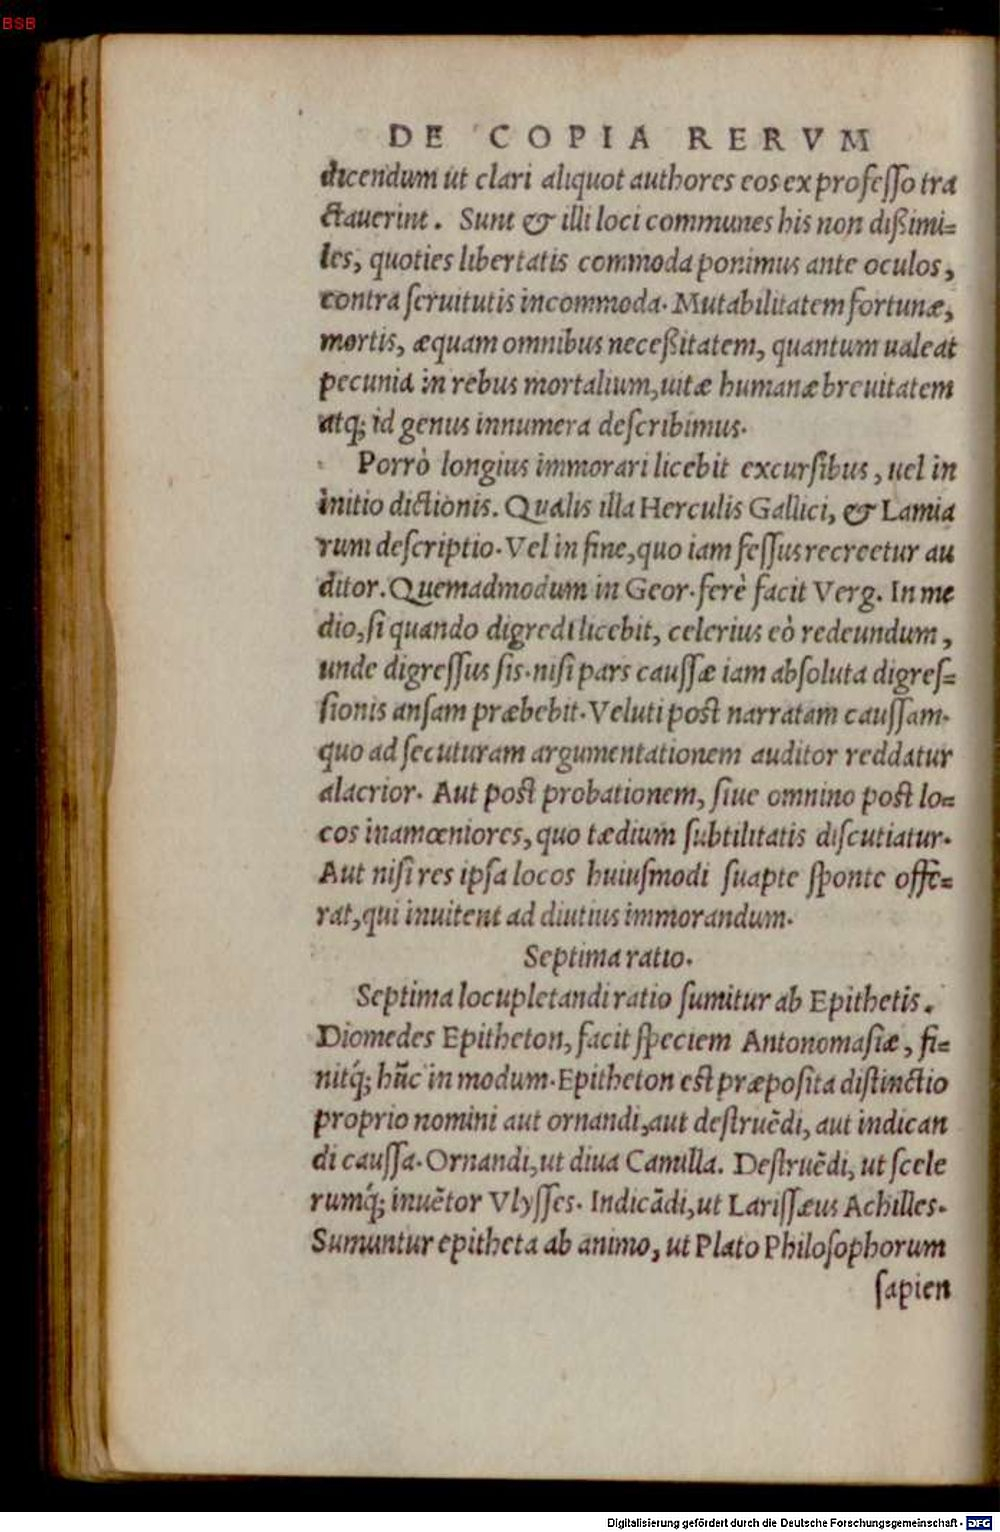 BSB
DE COPIA RERVM
dicendum ut clari aliquot authores eos ex professo tra
ctauerint. Sunt & illi loci communes his non dißimi=
les, quoties libertatis commoda ponimus ante oculos,
contra seruitutis incommoda. Mutabilitatem fortunæ,
mortis, æquam omnibus neceßitatem, quantum ualeat
pecunia in rebus mortalium, uitæ humanæ breuitatem
atq; id genus innumera describimus.
Porrò longius immorari licebit excursibus, uel in
initio dictionis. Qualis illa Herculis Gallici, & Lamia
rum descriptio. Vel in fine, quo iam fessus recreetur au
ditor. Quemadmodum in Geor. ferè facit Verg. In me
dio, si quando digredi licebit, celerius eò redeundum,
unde digressus sis. nisi pars caussæ iam absoluta digres=
sionis ansam præbebit. Veluti post narratam caussam.
quo ad secuturam argumentationem auditor reddatur
alacrior. Aut post probationem, siue omnino post lo=
cos inamœniores, quo tædium subtilitatis discutiatur.
Aut nisi res ipsa locos huiusmodi suapte sponte offe=
rat, qui inuitent ad diutius immorandum.
Septima ratio.
Septima locupletandi ratio sumitur ab Epithetis.
Diomedes Epitheton, facit speciem Antonomasiæ, fi=
nitq́; hũc in modum. Epitheton est præposita distinctio
proprio nomini aut ornandi, aut destruẽdi, aut indican
di caussa. Ornandi, ut diua Camilla. Destruẽdi, ut scele
rumq́; inuẽtor Vlysses. Indicãdi, ut Larissæus Achilles.
Sumuntur epitheta ab animo, ut Plato Philosophorum
sapien
Digitalisierung gefördert durch die Deutsche Forschungsgemeinschaft - DFG